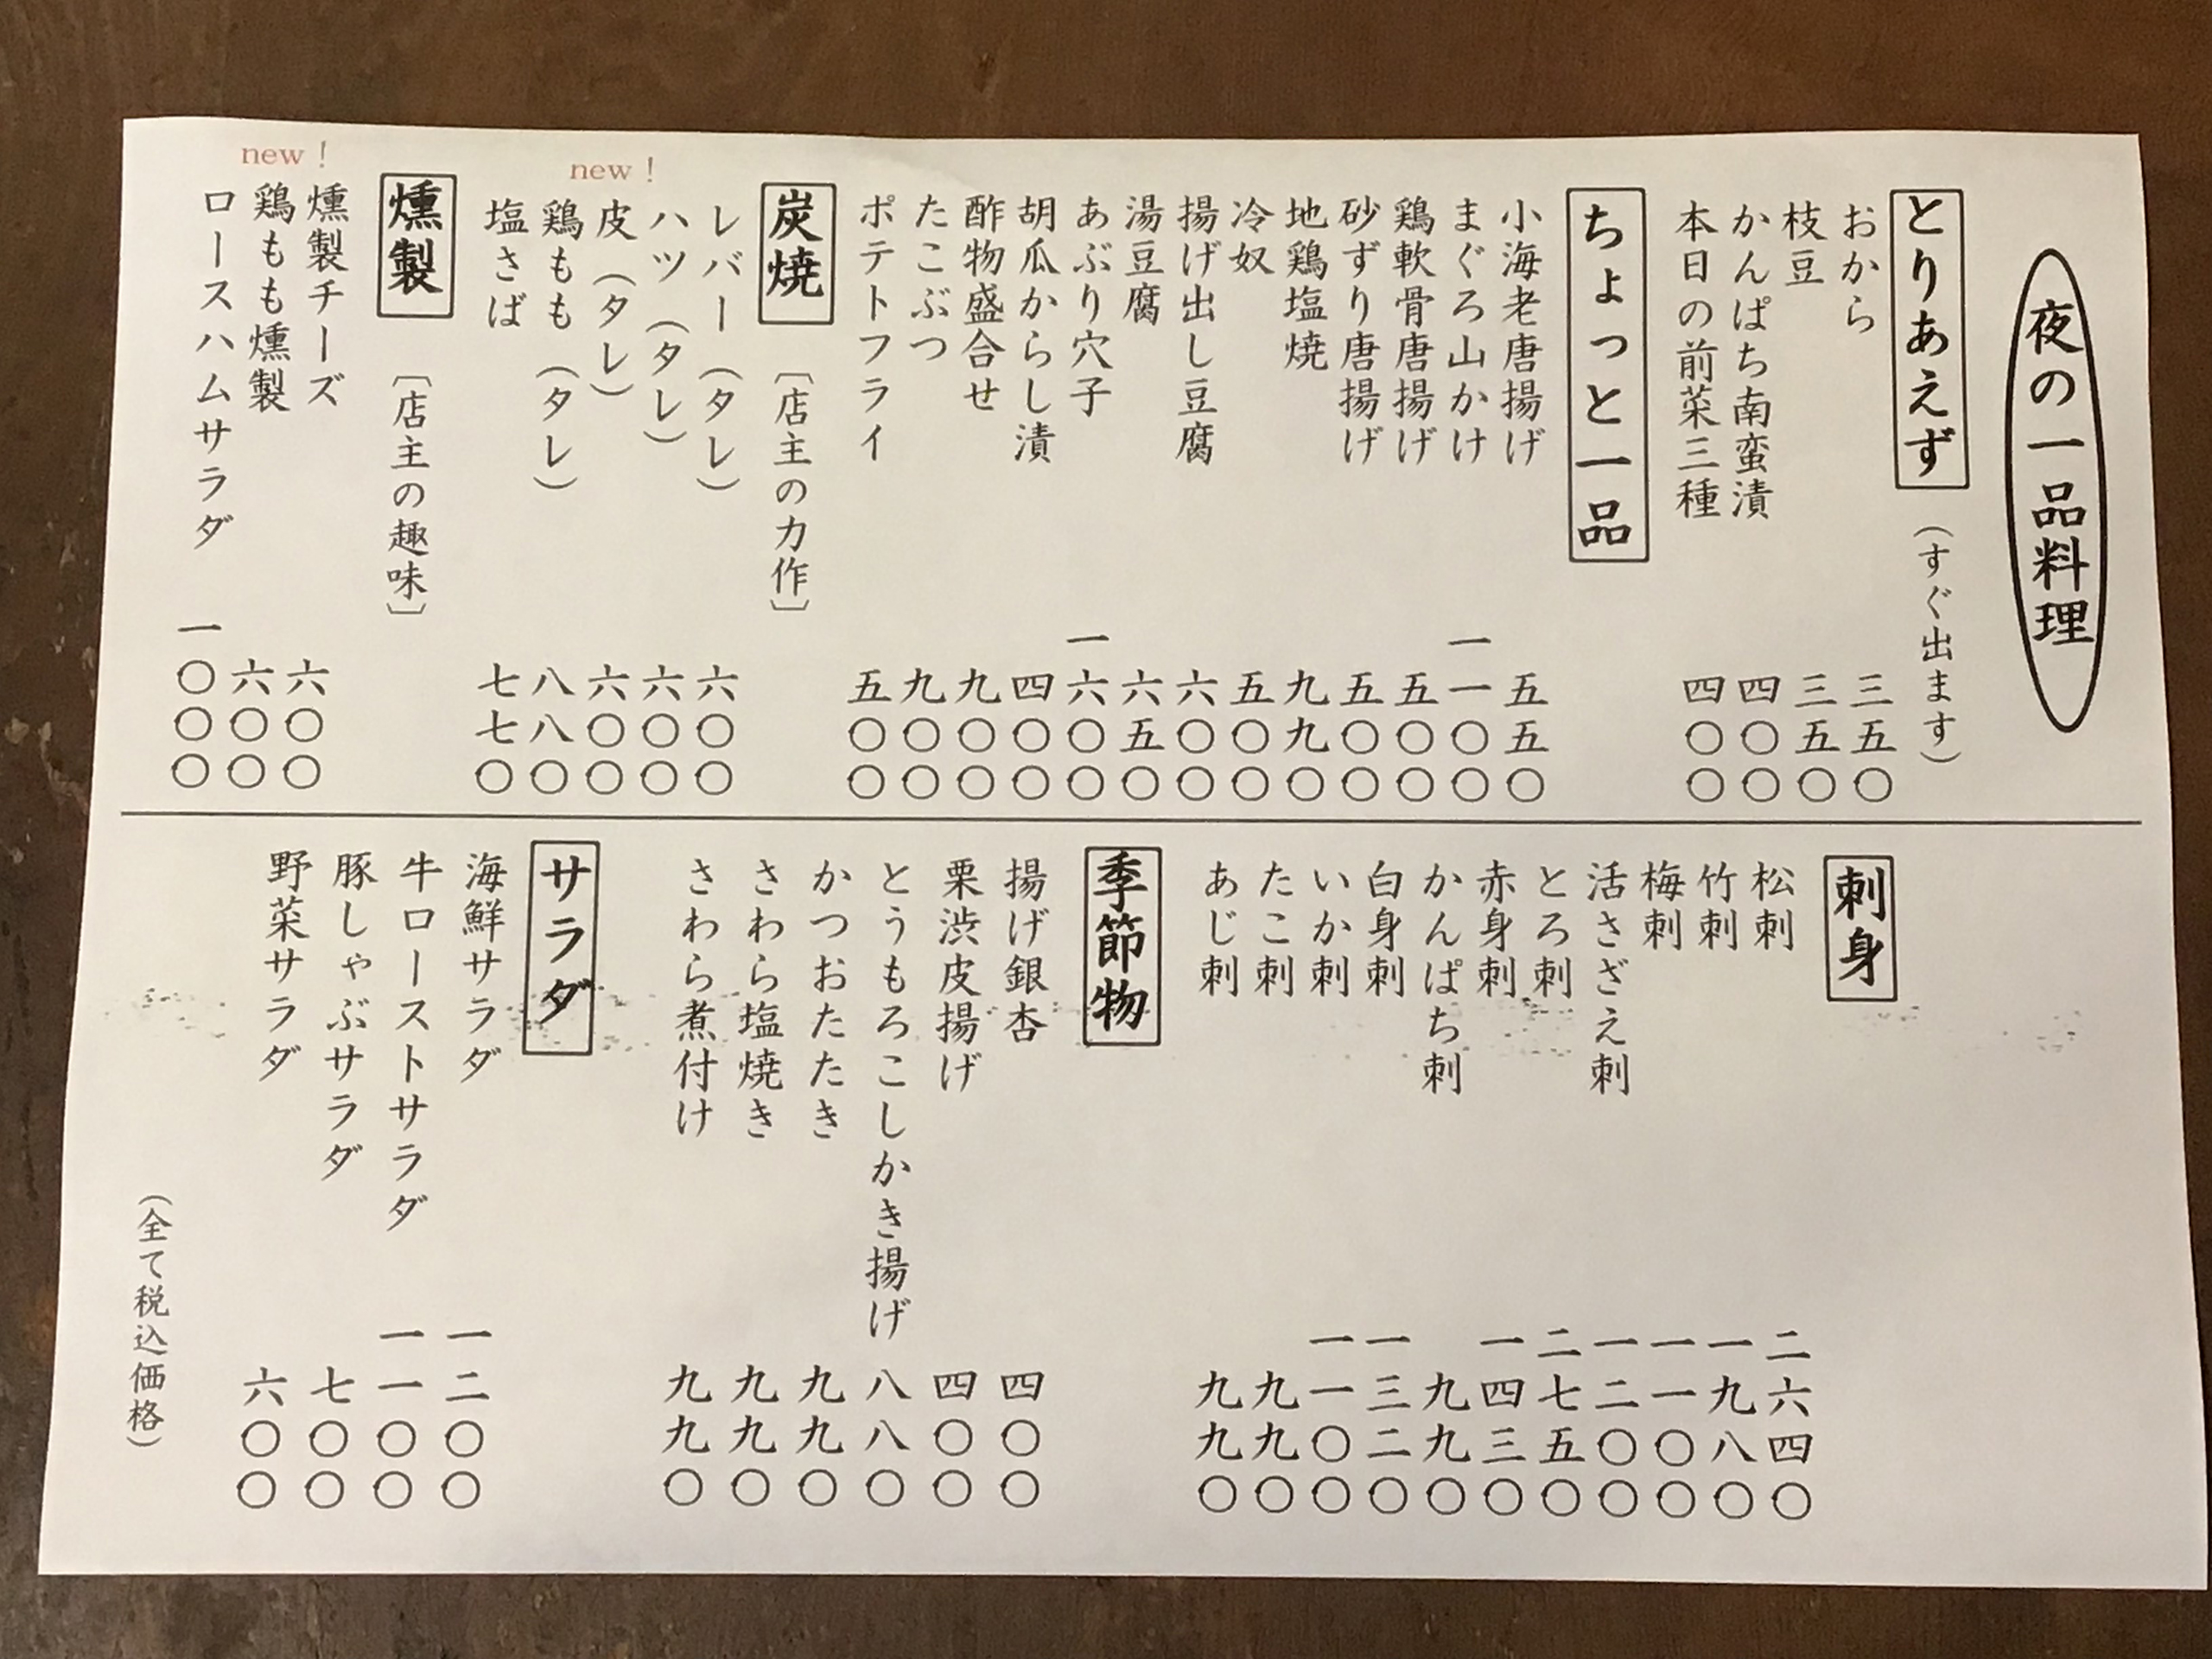 夜の一品料理
とりあえず（すぐ出ます）
おから 三五〇
枝豆 三五〇
かんぱち南蛮漬 四〇〇
本日の前菜三種 四〇〇
ちょっと一品
小海老唐揚げ 五五〇
まぐろ山かけ 一一〇〇
鶏軟骨唐揚げ 五〇〇
砂ずり唐揚げ 五〇〇
地鶏塩焼 九九〇
冷奴 五〇〇
揚げ出し豆腐 六〇〇
湯豆腐 六五〇
あぶり穴子 一六〇〇
胡瓜からし漬 四〇〇
酢物盛合せ 九〇〇
たこぶつ 九〇〇
ポテトフライ 五〇〇
炭焼〔店主の力作〕
レバー（タレ） 六〇〇
ハツ（タレ） 六〇〇
皮（タレ） 六〇〇
new！
鶏もも（タレ） 八八〇
塩さば 七七〇
燻製〔店主の趣味〕
燻製チーズ 六〇〇
new！
鶏もも燻製 六〇〇
ロースハムサラダ 一〇〇〇
刺身
松刺 二六四〇
竹刺 一九八〇
梅刺 一一〇〇
活さざえ刺 一二〇〇
とろ刺 二七五〇
赤身刺 一四三〇
かんぱち刺 九九〇
白身刺 一三二〇
いか刺 一一〇〇
たこ刺 九九〇
あじ刺 九九〇
季節物
揚げ銀杏 四〇〇
栗渋皮揚げ 四〇〇
とうもろこしかき揚げ 八八〇
かつおたたき 九九〇
さわら塩焼き 九九〇
さわら煮付け 九九〇
サラダ
海鮮サラダ 一二〇〇
牛ローストサラダ 一一〇〇
豚しゃぶサラダ 七〇〇
野菜サラダ 六〇〇
（全て税込価格）